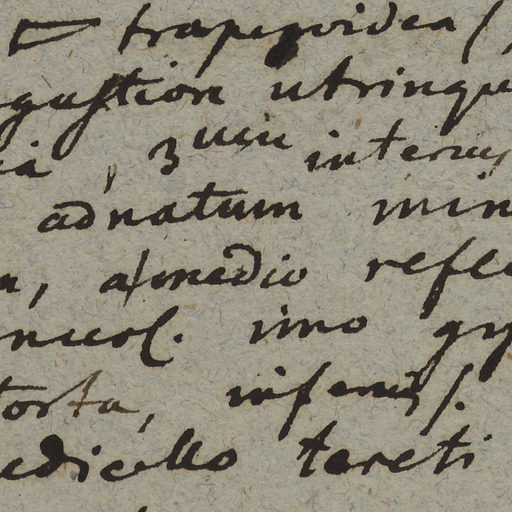 trapezoidea(,
gustion utrinqu
ia, 3um interius
adnatum min
a, a medio refle
nuol. imo gy
torta, inferius).
edicello tereti